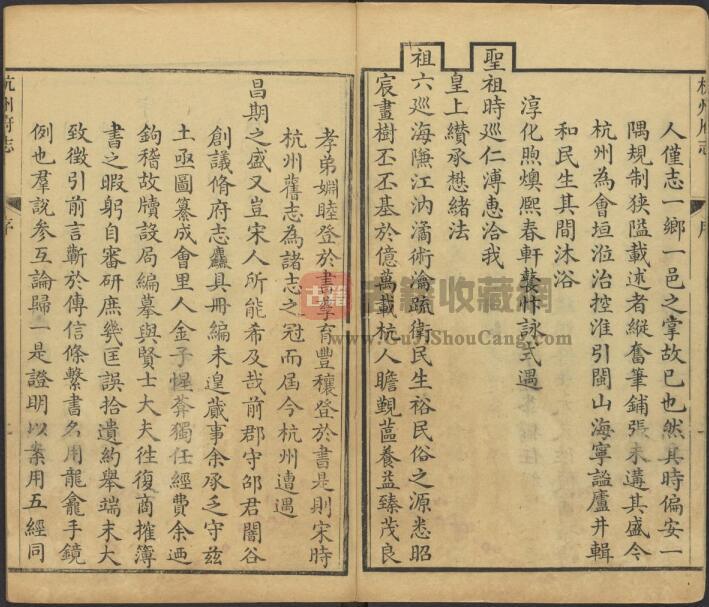 杭州府志
序
人僅志一鄉一邑之掌故已也然其時偏安一
隅規制狹隘載述者縱奮筆鋪張未遘其盛今
杭州為會垣涖治控淮引閩山海寧謐廬井輯
和民生其間沐浴
淳化煦燠熙春軒鼚忭詠式遇
聖祖時巡仁溥惠洽我
皇上纘承懋緒法
祖六巡海隒江汭潏術瀹疏衛民生裕民俗之源悉昭
宸畫樹丕丕基於億萬載杭人瞻覲蕰養益臻茂良
孝弟婣睦登於書孳育豐穰登於書是則宋時
杭州舊志為諸志之冠而屆今杭州遭遇
昌期之盛又豈宋人所能希及哉前郡守邵君闇谷
創議脩府志麤具冊編未遑蕆事余承乏守茲
土亟圖纂成會里人金子惺莽獨任經費余迺
鉤稽故牘設局編摹與賢士大夫徃復商搉簿
書之暇躬自審研庶幾匡誤拾遺約舉端末大
致徵引前言蘄於傳信條繫書名用龍龕手鏡
例也羣說參互論歸一是證明以案用五經同
杭州府志
序
古籍收藏網
www.GuJiShouCang.com